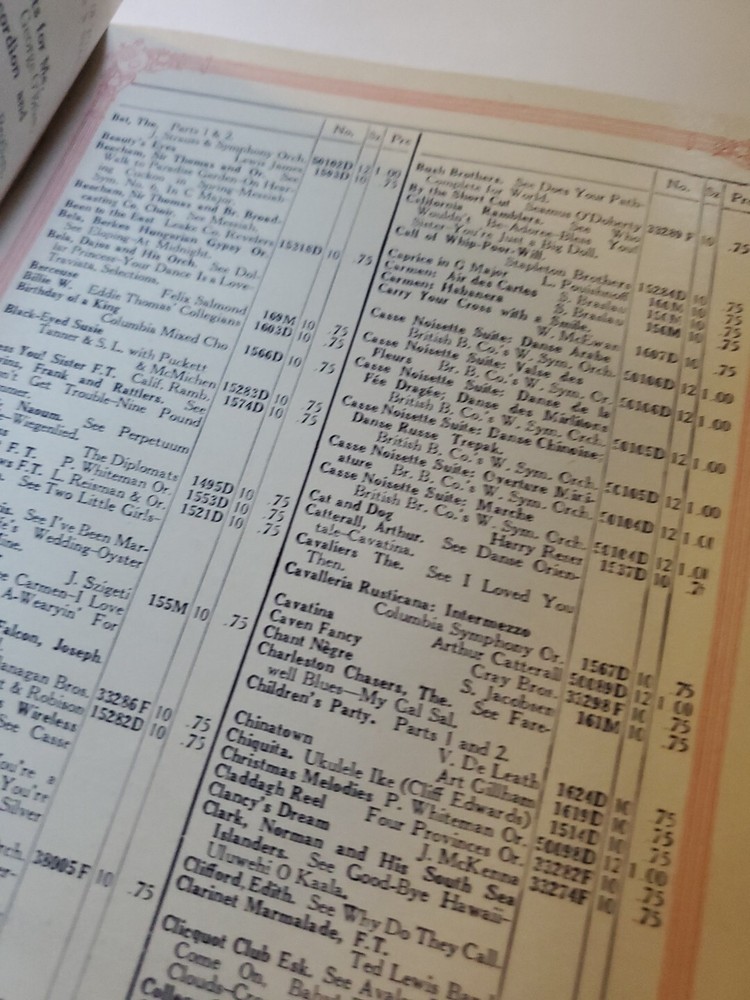 ts for Me
George O'Brien
cordion and
No. Sz Pre
Bat, The. Parts 1 & 2.
J. Strauss & Symphony Orch. 50102D 12 1.00
Beauty's Eyes Lewis James 1503D 10 .75
Beecham, Sir Thomas and Or. See
Walk to Paradise Garden-On Hear-
ing Cuckoo in Spring-Messiah-
Sym. No. 6, In C Major.
Beecham, Sir Thomas and Br. Broad-
casting Co. Choir. See Messiah.
Been to the East Leake Co. Revelers 15318D 10 .75
Bela, Berkes Hungarian Gypsy Or.
See Eloping-At Midnight.
Bela, Dajos and His Orch. See Dol-
lar Princess-Your Dance Is a Love-
Traviata, Selections.
Berceuse Felix Salmond 169M 10 .75
Billie W. Eddie Thomas' Collegians 1603D 10 .75
Birthday of a King
Columbia Mixed Cho 1566D 10 .75
Black-Eyed Susie
Tanner & S. L. with Puckett
& McMichen 15283D 10 .75
ess You! Sister F.T. Calif. Ramb. 1574D 10 .75
Frank and Rattlers. See
n't Get Trouble-Nine Pound
mmer.
Naoum. See Perpetuum
-Wiegenlied.
The Diplomats 1495D 10 .75
F.T. P. Whiteman Or. 1553D 10 .75
ws F.T. L. Reisman & Or. 1521D 10 .75
See Two Little Girls-
See I've Been Mar-
fe's Wedding-Oyster
J. Szigeti 155M 10 .75
e Carmen-I Love
A-Wearyin' For
Falcon, Joseph
anagan Bros. 33286F 10 .75
t & Robison 15282D 10 .75
Wireless
See Casse
You're a
You're
Silver
rch. 38005F 10 .75
No. Sz Pr
Bush Brothers. See Does Your Path-
Complete for World.
By the Short Cut Seamus O'Doherty 33289F 10 .75
California Ramblers. See Who
Wouldn't Be-Adoree-Bless You!
Sister-You're Just a Big Doll.
Call of Whip-Poor-Will.
Stapleton Brothers 15284D 10 .75
Caprice in G Major L. Pouishnoff 164M 10 .75
Carmen: Air des Cartes S. Braslau 156M 10 .75
Carmen: Habanera S. Braslau 156M 10 .75
Carry Your Cross with a Smile.
W. McEwan 1607D 10 .75
Casse Noisette Suite: Danse Arabe
British B. Co.'s W. Sym. Orch. 50106D 12 1.00
Casse Noisette Suite: Valse des
Fleurs Br. B. Co.'s W. Sym. Or. 50106D 12 1.00
Casse Noisette Suite: Danse de la
Fée Dragée; Danse des Mirlitons
British B. Co.'s W. Sym. Orch. 50105D 12 1.00
Casse Noisette Suite: Danse Chinoise;
Danse Russe Trepak.
British B. Co.'s W. Sym. Orch. 50105D 12 1.00
Casse Noisette Suite: Overture Mini-
ature Br. B. Co.'s W. Sym. Orch. 50104D 12 1.00
Casse Noisette Suite: Marche
British Br. Co.'s W. Sym. Orch. 50104D 12 1.00
Cat and Dog Harry Reser 1537D 10 .75
Catterall, Arthur. See Danse Orien-
tale-Cavatina.
Cavaliers The. See I Loved You
Then.
Cavalleria Rusticana: Intermezzo
Columbia Symphony Or. 1567D 10 .75
Cavatina Arthur Catterall 50089D 12 1.00
Caven Fancy Cray Bros. 33298F 10 .75
Chant Nègre S. Jacobsen 161M 10 .75
Charleston Chasers, The. See Fare-
well Blues-My Gal Sal.
Children's Party. Parts 1 and 2.
V. De Leath 1624D 10 .75
Chinatown Art Gillham 1619D 10 .75
Chiquita. Ukulele Ike (Cliff Edwards) 1514D 10 .75
Christmas Melodies P. Whiteman Or. 50098D 12 1.00
Claddagh Reel Four Provinces Or. 33282F 10 .75
Clancy's Dream J. McKenna 33274F 10 .75
Clark, Norman and His South Sea
Islanders. See Good-Bye Hawaii-
Uluwehi O Kaala.
Clifford, Edith. See Why Do They Call.
Clarinet Marmalade, F.T.
Ted Lewis Ban
Clicquot Club Esk. See Avalo
Come On, Bab
Clouds-Cro